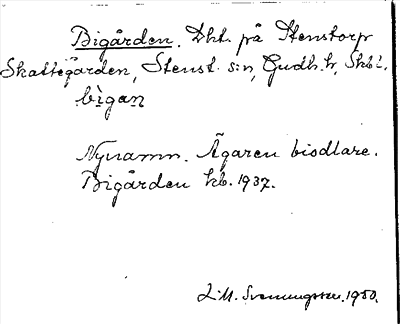 Bigården. Dht. på Stenstorp
Skattegården, Stenst. s:n, Gudh. h, Skbl.
bìgan
Nynamn. Ägaren biodlare.
Bigården kb. 1937.
L. M. Svenungsson. 1950.